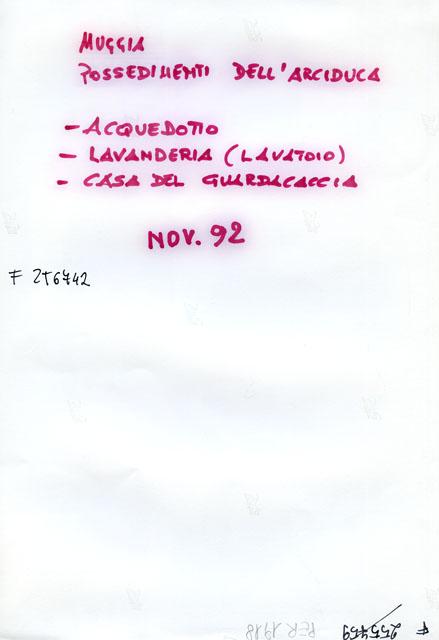 MUGGIA
POSSEDIMENTI DELL'ARCIDUCA
- ACQUEDOTTO
- LAVANDERIA (LAVATOIO)
- CASA DEL GUARDACACCIA
NOV. 92
F 276742
F 255459
PER 1918